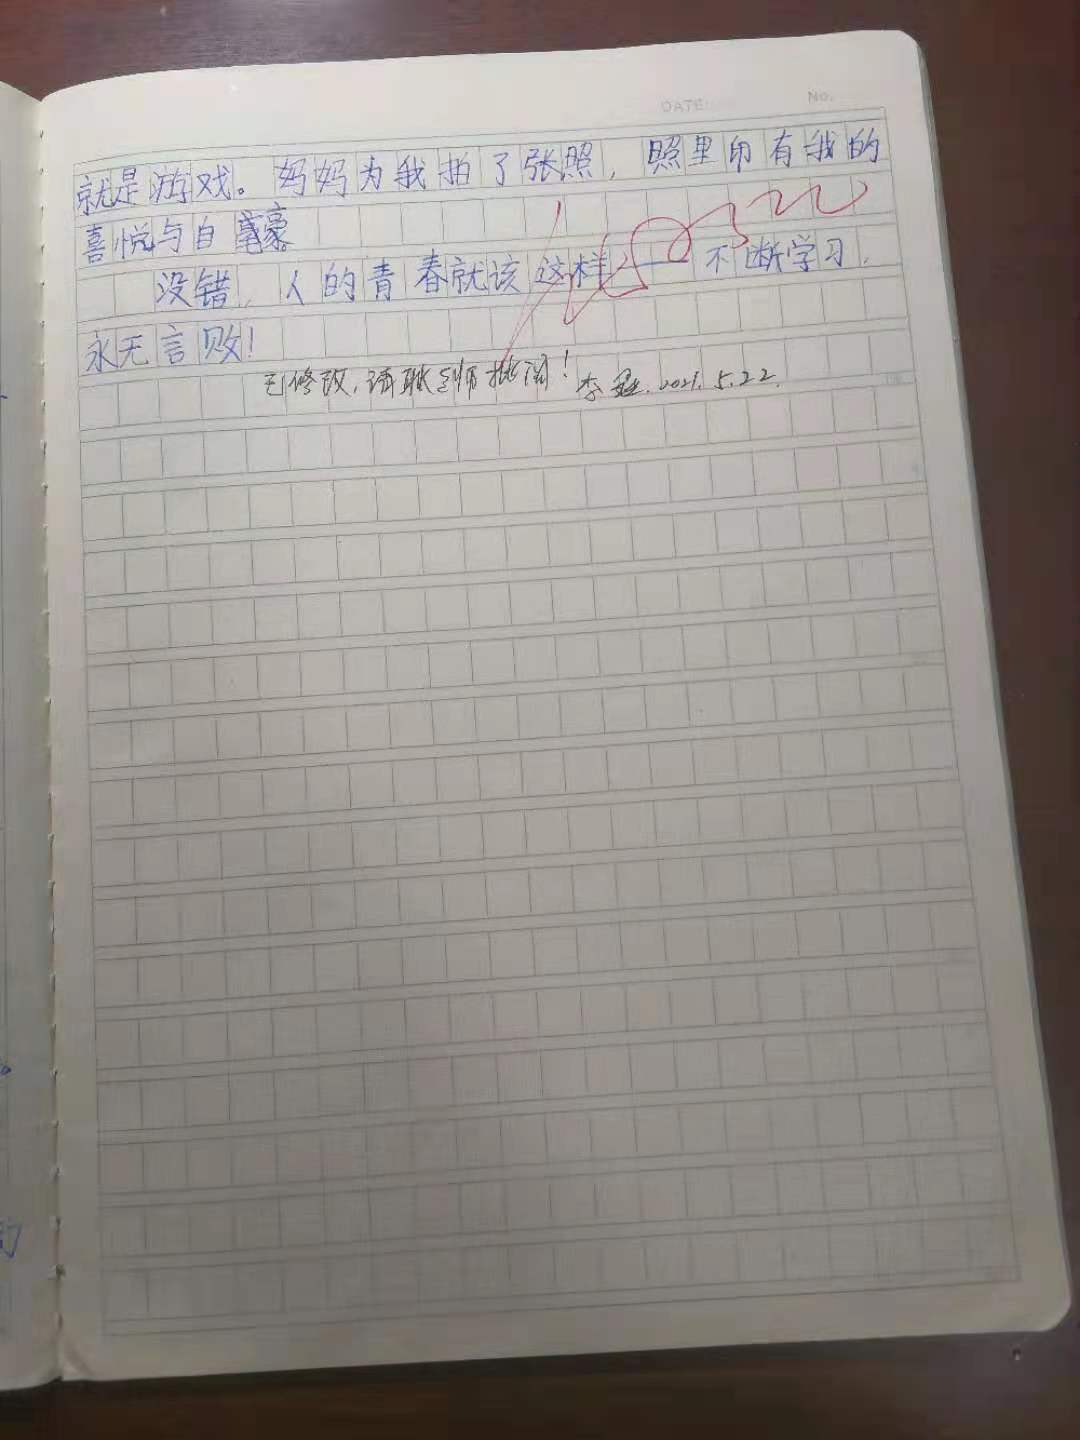 DATE:
No.
就是游戏。妈妈为我拍了张照，照里印有我的
喜悦与自豪。
没错，人的青春就该这样——不断学习，
永无言败！
已修改，请耿老师批阅！李 2021.5.22.
的